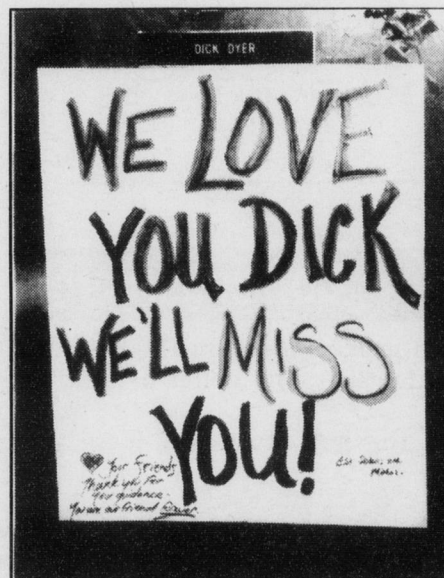 DICK DYER
WE LOVE
YOU DICK
WE'LL MISS
YOU!
Your Friends
Thank you For
your guidance.
You are our friend forever.